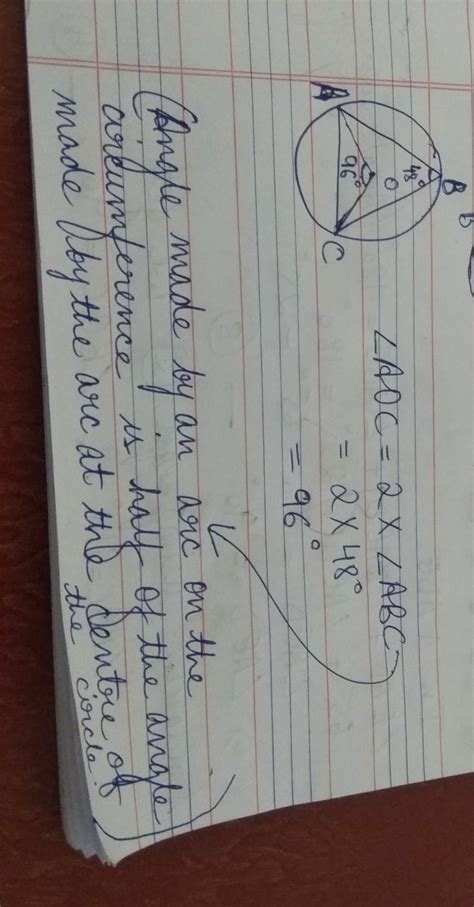 B
48°
O
96°
A
C
∠AOC = 2 × ∠ABC
= 2 × 48°
= 96°
(Angle made by an arc on the
circumference is half of the angle
made by the arc at the centre of
the circle.)